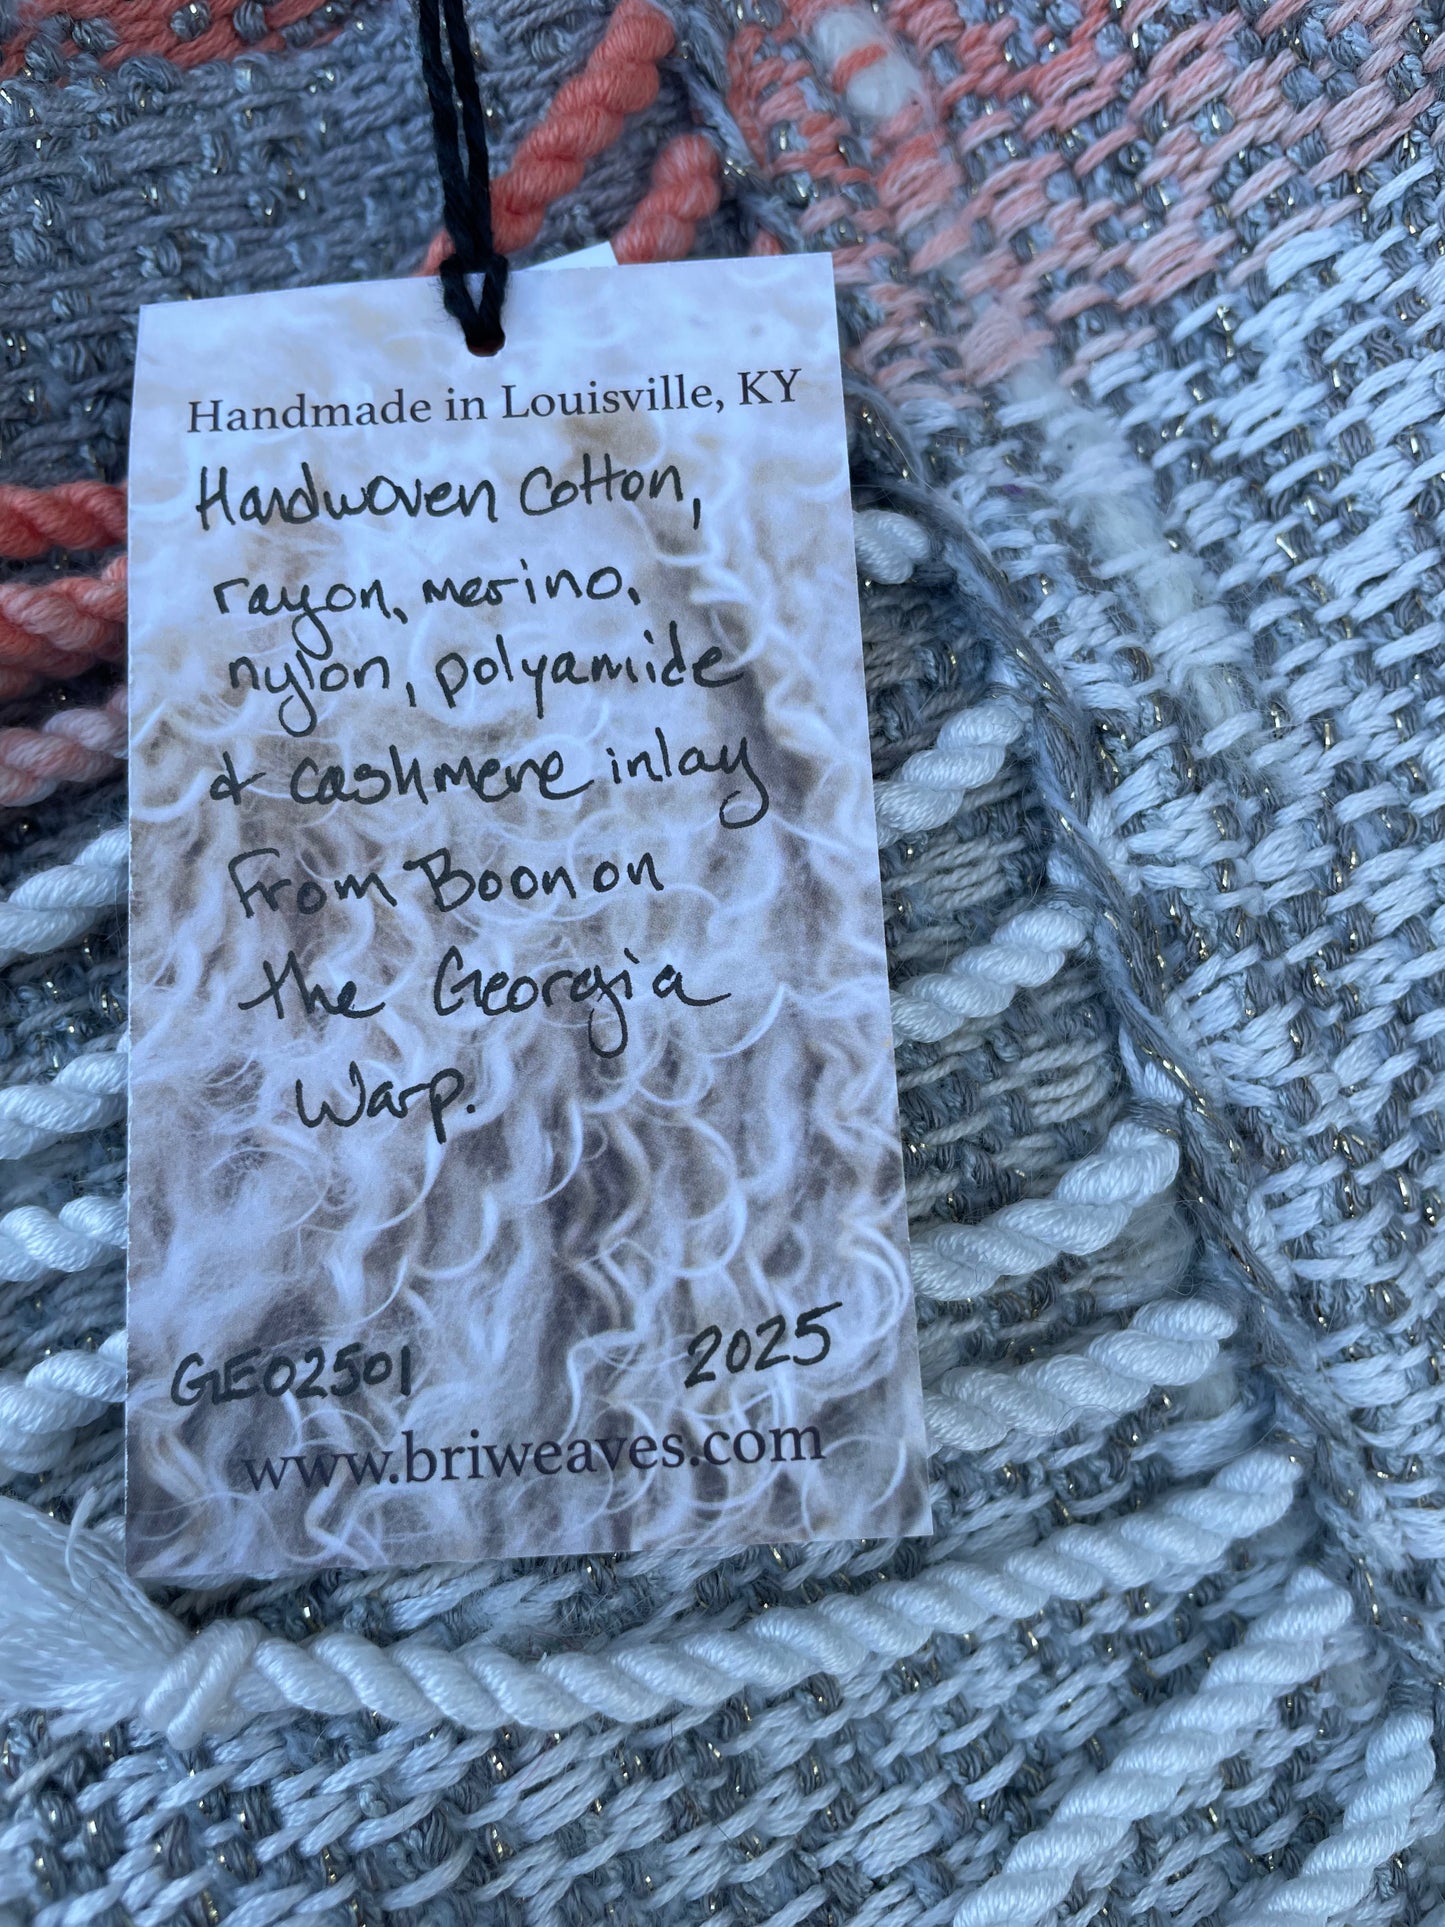 Handmade in Louisville, KY
Handwoven Cotton,
rayon, merino,
nylon, polyamide
& cashmere inlay
From Boon on
the Georgia
Warp.
GE02501 2025
www.briweaves.com